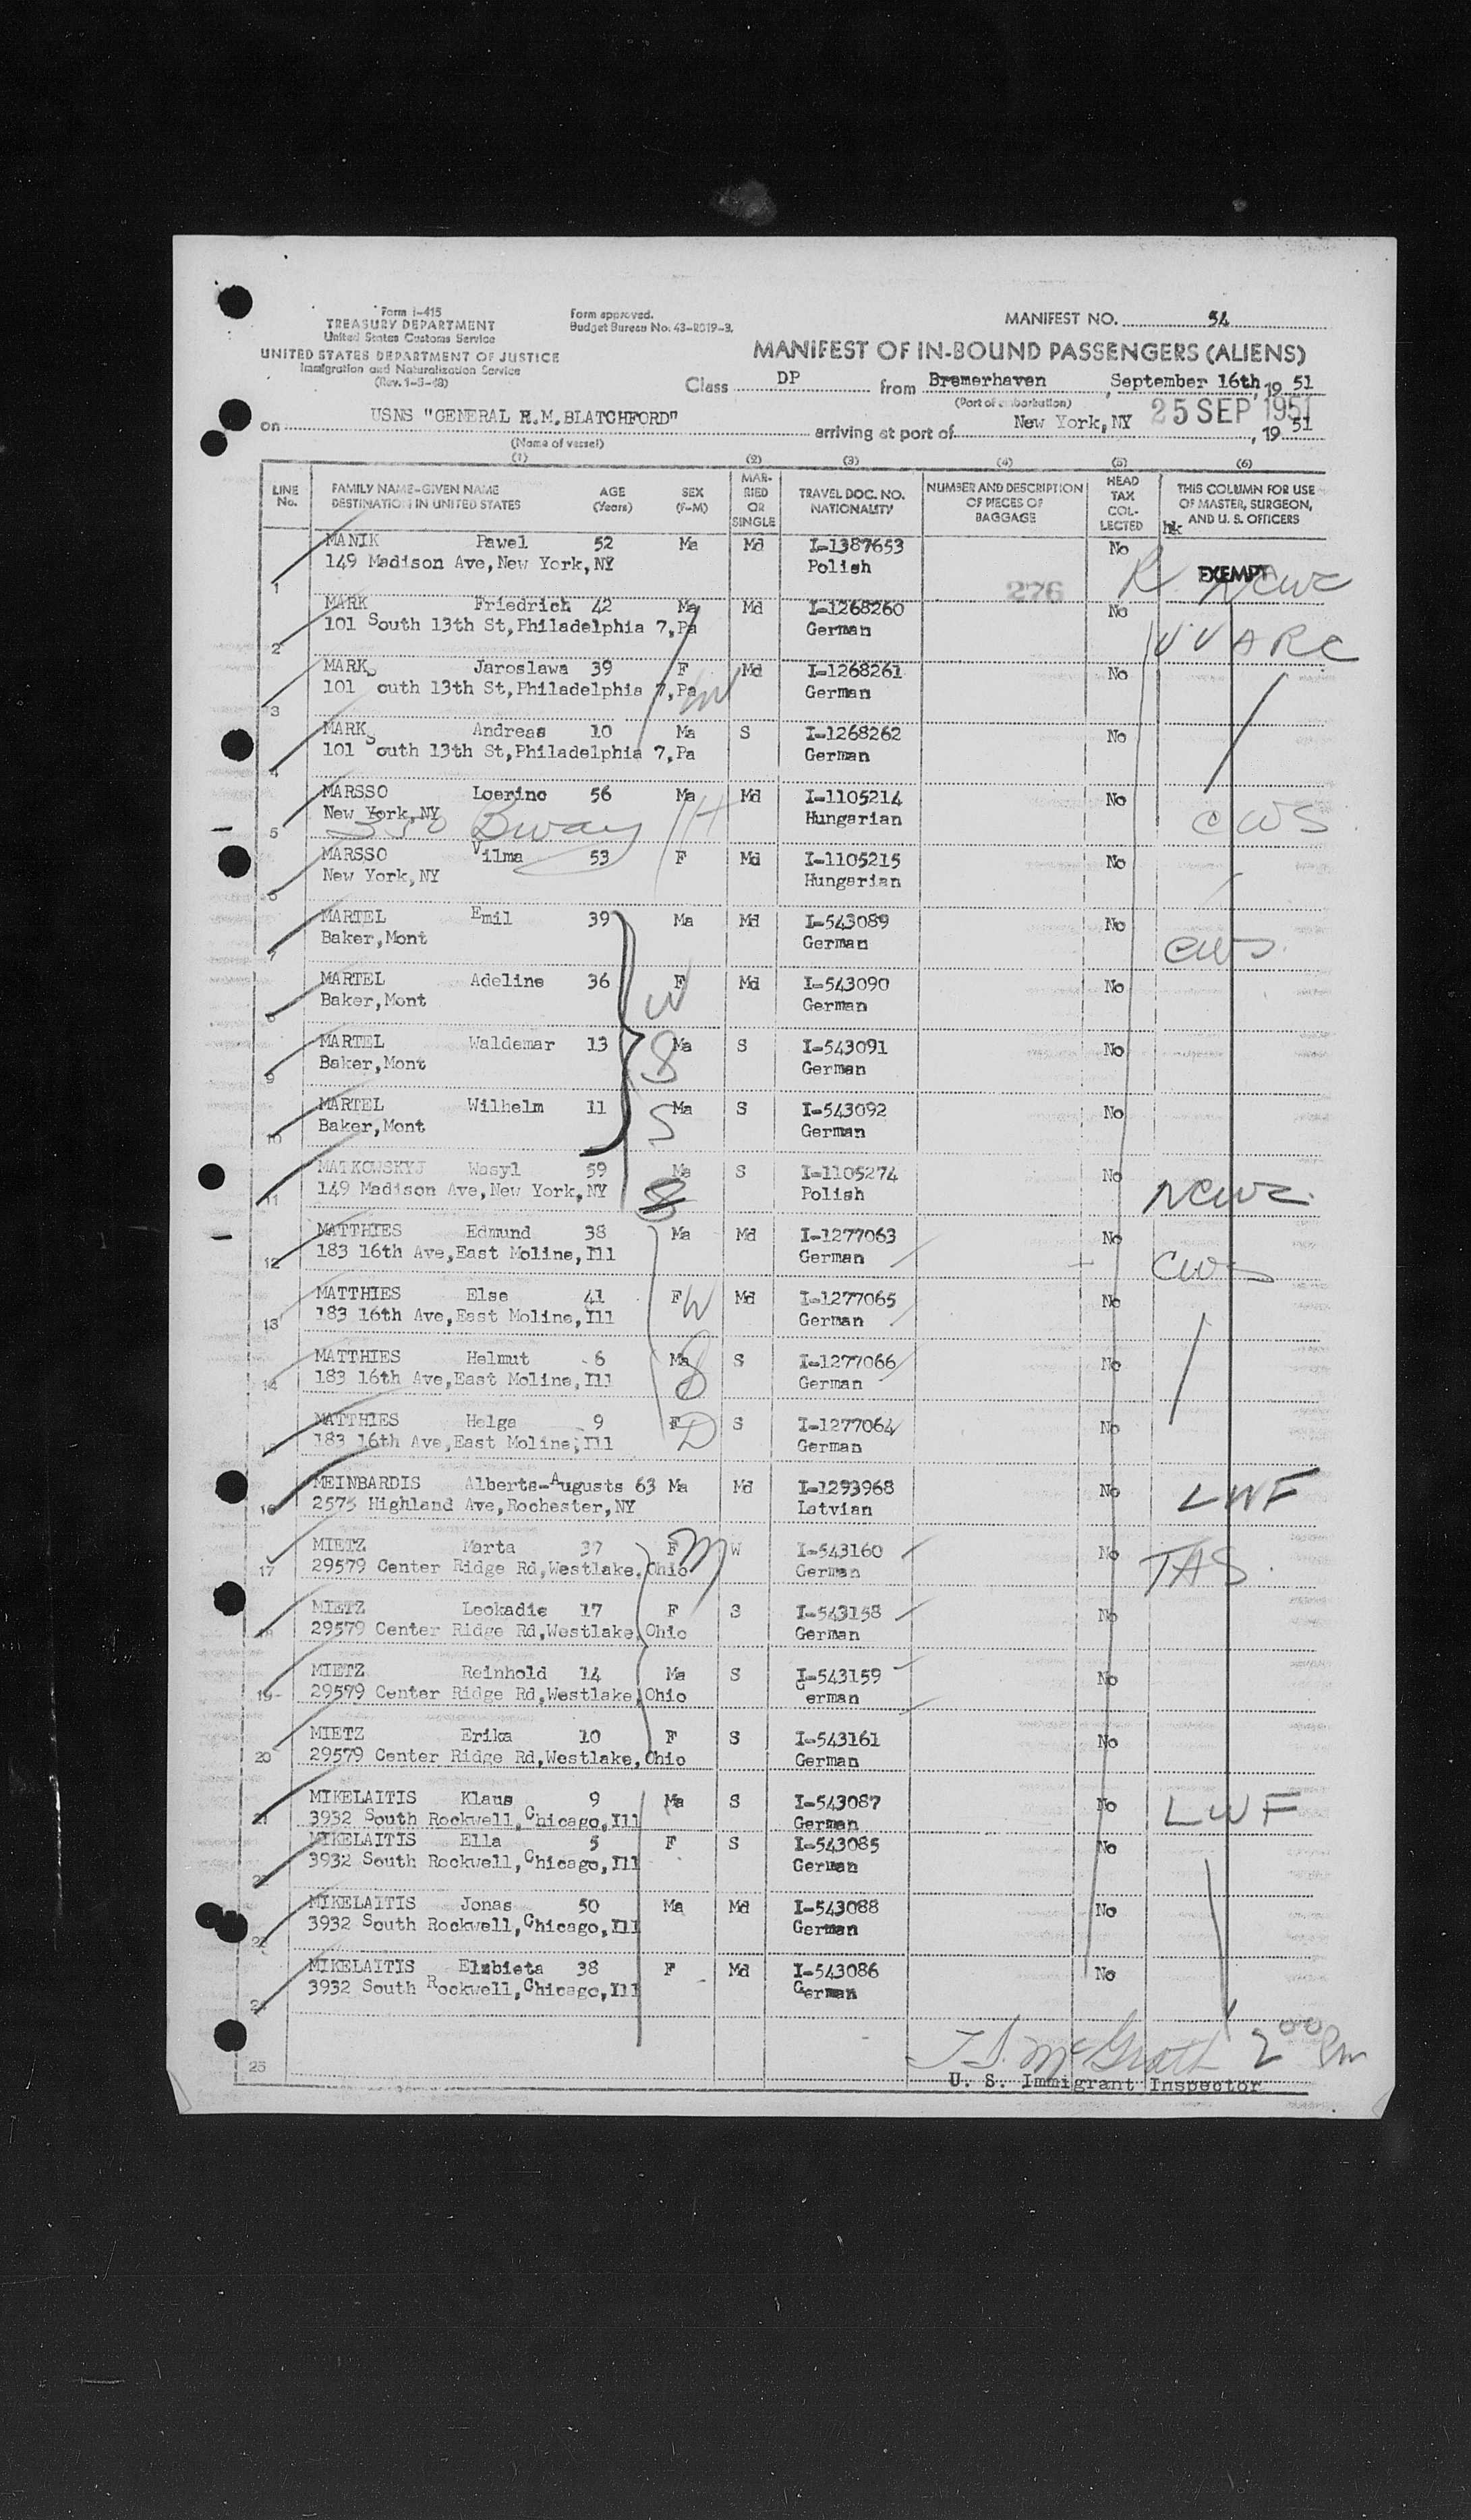 Form I-415
TREASURY DEPARTMENT
United States Customs Service
UNITED STATES DEPARTMENT OF JUSTICE
Immigration and Naturalization Service
(Rev. 1-3-48)
Form approved.
Budget Bureau No. 43-R019-3.
MANIFEST NO. 54
MANIFEST OF IN-BOUND PASSENGERS (ALIENS)
Class DP from Bremerhaven, September 16th, 19 51
(Port of embarkation)
on USNS "GENERAL R.M.BLATCHFORD" arriving at port of New York, NY 25 SEP 1951, 19 51
(Name of vessel)
(1) (2) (3) (4) (5) (6)
LINE No. FAMILY NAME-GIVEN NAME DESTINATION IN UNITED STATES AGE (Years) SEX (F-M) MARRIED OR SINGLE TRAVEL DOC. NO. NATIONALITY NUMBER AND DESCRIPTION OF PIECES OF BAGGAGE HEAD TAX COLLECTED THIS COLUMN FOR USE OF MASTER, SURGEON, AND U. S. OFFICERS
hk
MANIK Pawel 52 Ma Md I-1387653 No
1 149 Madison Ave, New York, NY Polish 276 R EXEMPT NCWC
MARK Friedrich 42 Ma Md I-1268260 No
2 101 South 13th St, Philadelphia 7, Pa German UUARC
MARK Jaroslawa 39 F Md I-1268261 No
3 101 South 13th St, Philadelphia 7, Pa W German
MARK Andreas 10 Ma S I-1268262 No
4 101 South 13th St, Philadelphia 7, Pa German
MARSSO Loerinc 56 Ma Md I-1105214 No
5 New York, NY 350 Bway H Hungarian CWS
MARSSO Vilma 53 F Md I-1105215 No
6 New York, NY Hungarian
MARTEL Emil 39 Ma Md I-543089 No
7 Baker, Mont German CWS
MARTEL Adeline 36 F Md I-543090 No
8 Baker, Mont W German
MARTEL Waldemar 13 Ma S I-543091 No
9 Baker, Mont S German
MARTEL Wilhelm 11 Ma S I-543092 No
10 Baker, Mont S German
MATKOWSKYJ Wasyl 59 Ma S I-1105274 No
11 149 Madison Ave, New York, NY S Polish NCWC
MATTHIES Edmund 38 Ma Md I-1277063 No
12 183 16th Ave, East Moline, Ill German CWS
MATTHIES Else 41 F W Md I-1277065 No
13 183 16th Ave, East Moline, Ill German
MATTHIES Helmut 6 Ma S I-1277066 No
14 183 16th Ave, East Moline, Ill S German
MATTHIES Helga 9 F S I-1277064 No
15 183 16th Ave, East Moline, Ill D German
MEINBARDIS Alberts-Augusts 63 Ma Md I-1293968 No LWF
16 2575 Highland Ave, Rochester, NY Latvian
MIETZ Marta 37 F M W I-543160 No
17 29579 Center Ridge Rd, Westlake, Ohio German TAS
MIETZ Leokadie 17 F S I-543158 No
18 29579 Center Ridge Rd, Westlake, Ohio German
MIETZ Reinhold 14 Ma S I-543159 No
19 29579 Center Ridge Rd, Westlake, Ohio German
MIETZ Erika 10 F S I-543161 No
20 29579 Center Ridge Rd, Westlake, Ohio German
MIKELAITIS Klaus 9 Ma S I-543087 No LWF
21 3932 South Rockwell, Chicago, Ill German
MIKELAITIS Ella 5 F S I-543085 No
22 3932 South Rockwell, Chicago, Ill German
MIKELAITIS Jonas 50 Ma Md I-543088 No
23 3932 South Rockwell, Chicago, Ill German
MIKELAITIS Elzbieta 38 F Md I-543086 No
24 3932 South Rockwell, Chicago, Ill German
25 T.S. McGrath 2 00 Pm
U. S. Immigrant Inspector